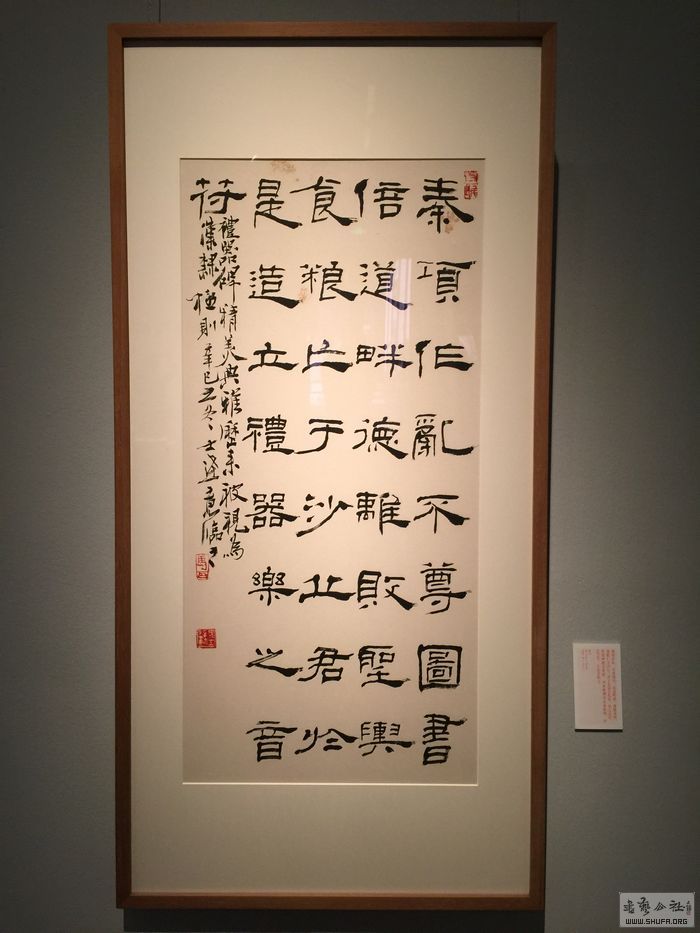 秦項作亂不尊圖書
倍道畔德離敗聖輿
食粮亡于沙丘君於
是造立禮器樂之音
苻
禮器碑精美典雅歷來被視為
漢隸極則辛巳之冬士達意臨之
書藝公社
WWW.SHUFA.ORG